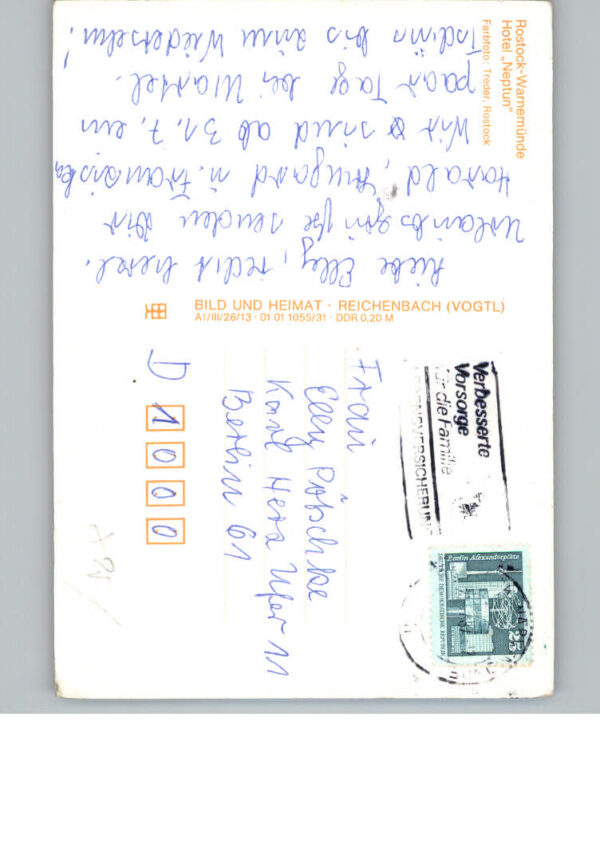 Rostock-Warnemünde
Hotel „Neptun“
Farbfoto: Treder, Rostock
Liebe Elly, recht herzl.
Urlaubsgrüße senden Dir
Harald, Irmgard u. Franziska
Wir sind ab 31.7. ein
paar Tage bei
Tschüß bis zum Wiedersehn!
BILD UND HEIMAT · REICHENBACH (VOGTL)
A1/III/26/13 · 01 01 1055/31 · DDR 0,20 M
Verbesserte
Vorsorge
für die Familie
LEBENSVERSICHERUNG
Berlin, Alexanderplatz
DEUTSCHE DEMOKRATISCHE REPUBLIK
25
Frau
Elly Pöschke
Karl Herz Ufer 11
Berlin 61
D 1000